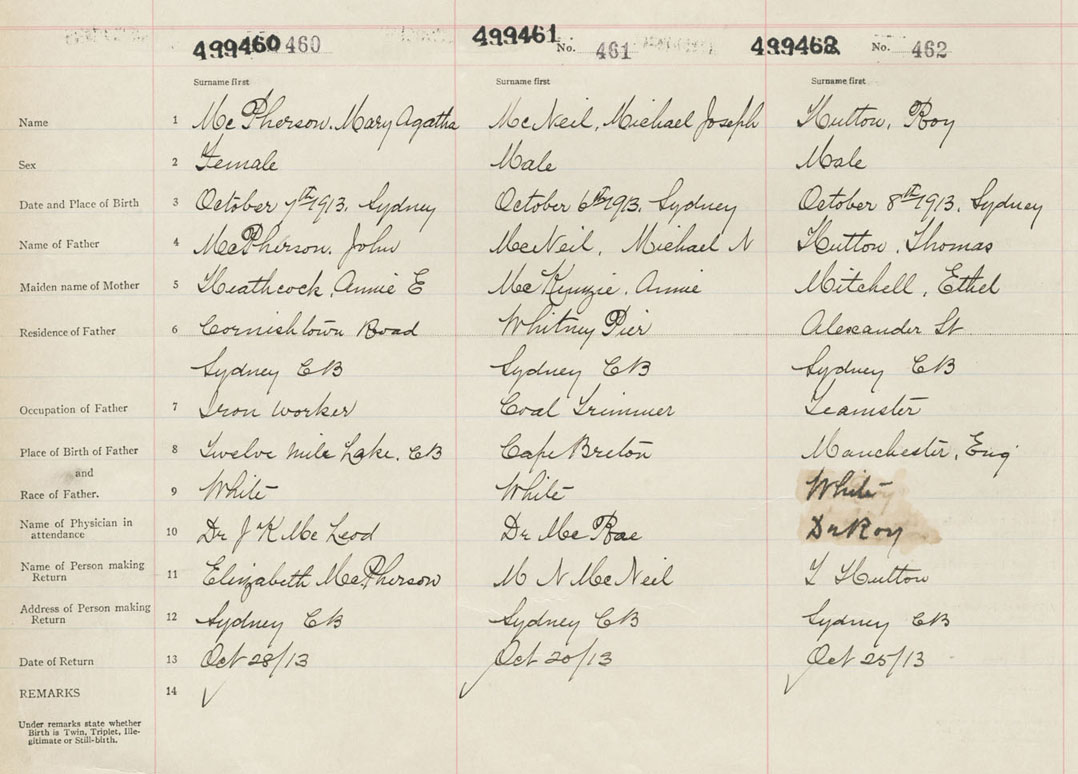 499460 460 499461 No. 461 499462 No. 462
Surname first Surname first Surname first
Name 1 McPherson, Mary Agatha McNeil, Michael Joseph Hutton, Roy
Sex 2 Female Male Male
Date and Place of Birth 3 October 7th 1913, Sydney October 6th 1913, Sydney October 8th 1913, Sydney
Name of Father 4 McPherson, John McNeil, Michael N Hutton, Thomas
Maiden name of Mother 5 Heathcock, Annie E McKinzie, Annie Mitchell, Ethel
Residence of Father 6 Cornishtown Road Whitney Pier Alexander St
Sydney CB Sydney CB Sydney CB
Occupation of Father 7 Iron worker Coal Trimmer Teamster
Place of Birth of Father 8 Twelve Mile Lake, CB Cape Breton Manchester, Eng
and
Race of Father. 9 White White White
Name of Physician in
attendance 10 Dr J K McLeod Dr McRae Dr Roy
Name of Person making
Return 11 Elizabeth McPherson M N McNeil T Hutton
Address of Person making
Return 12 Sydney CB Sydney CB Sydney CB
Date of Return 13 Oct 28/13 Oct 20/13 Oct 25/13
REMARKS 14
Under remarks state whether
Birth is Twin, Triplet, Ille-
gitimate or Still-birth.